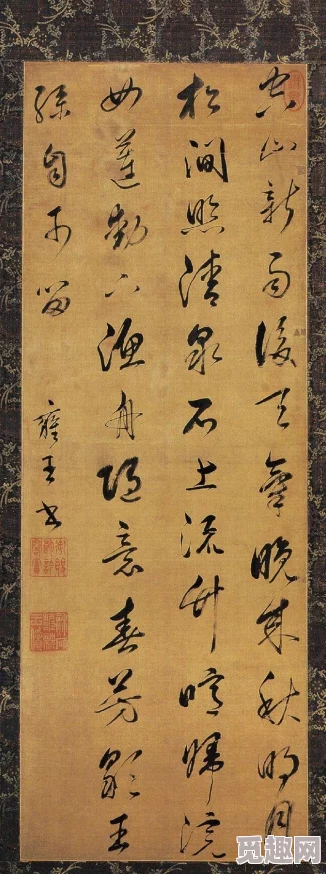 空山新雨後天氣晚来秋明月
松間照清泉石上流竹喧歸浣
女蓮動下漁舟随意春芳歇王
孫自可留
雍王书
觅趣网